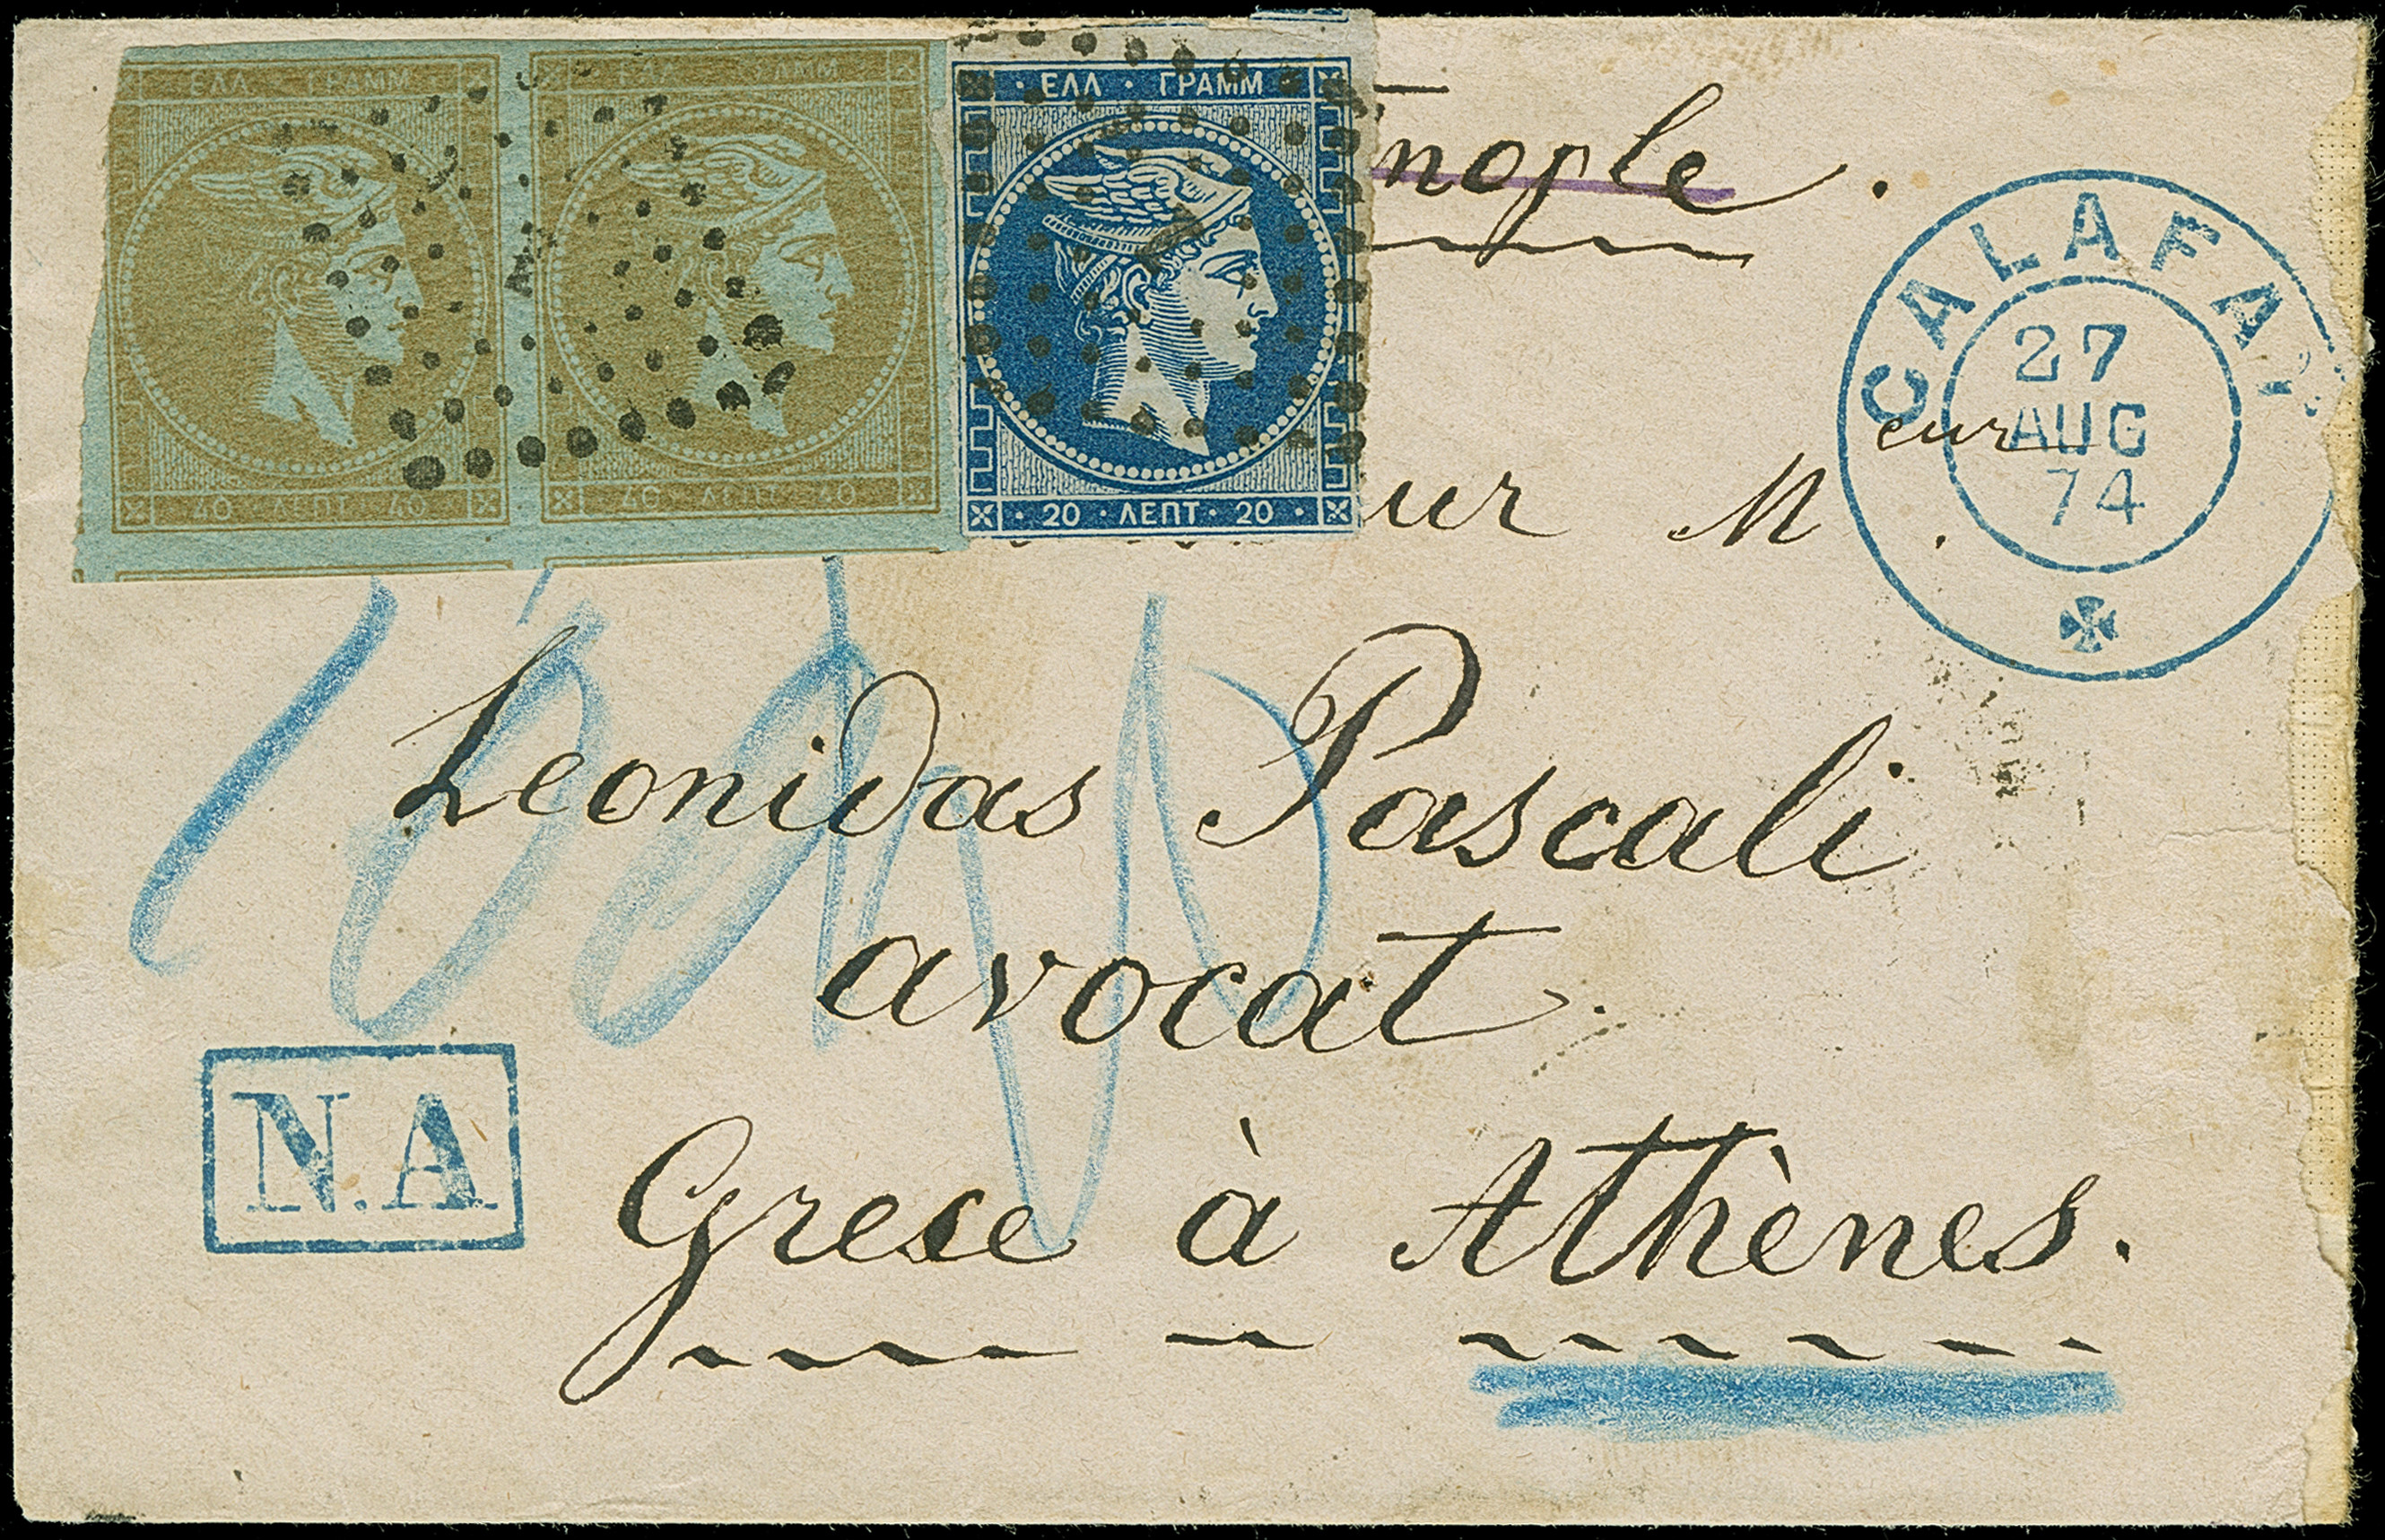 ΕΛΛ · ΓΡΑΜΜ
40 · ΛΕΠΤ · 40
ΓΡΑΜΜ
40 · ΛΕΠΤ · 40
· ΕΛΛ · ΓΡΑΜΜ ·
· 20 · ΛΕΠΤ · 20 ·
nople.
CALAFA
27
AUG
74
ur M eur
Leonidas Pascali
avocat
N.A
Grece à Athènes.